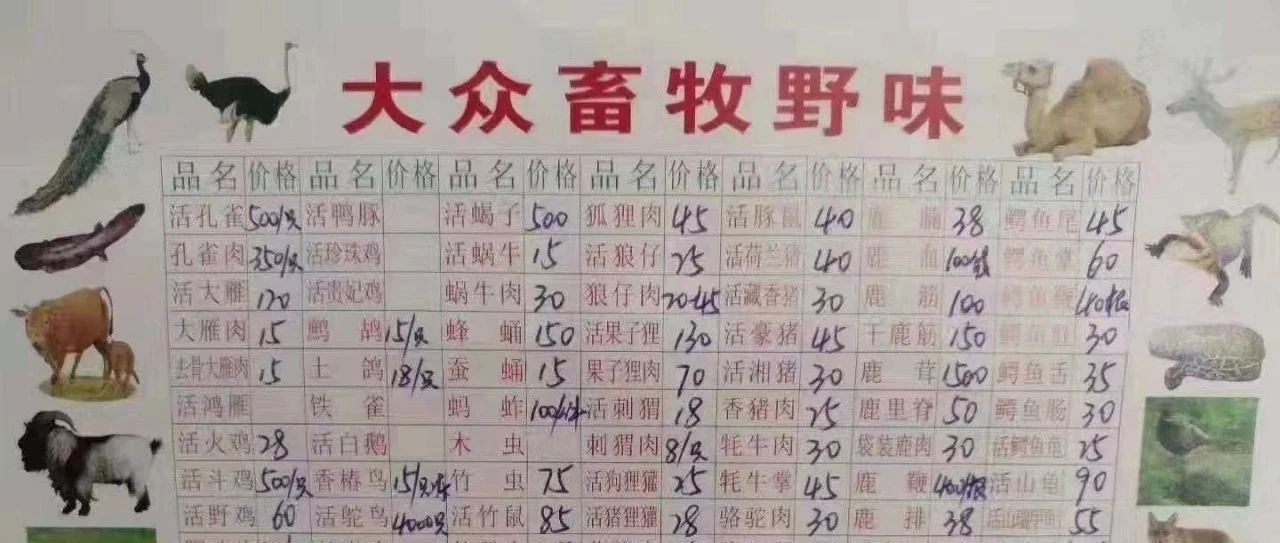 大众畜牧野味
品名 价格 品名 价格 品名 价格 品名 价格 品名 价格 品名 价格 品名 价格
活孔雀 500/只 活鸭豚 活蝎子 500 狐狸肉 45 活豚鼠 40 鹿腩 38 鳄鱼尾 45
孔雀肉 350/只 活珍珠鸡 活蜗牛 15 活狼仔 25 活荷兰猪 40 鹿血 鳄鱼掌 60
活大雁 120 活贵妃鸡 蜗牛肉 30 狼仔肉 20-45 活藏香猪 30 鹿筋 100 鳄鱼鞭
大雁肉 15 鹧鸪 15/只 蜂蛹 150 活果子狸 130 活豪猪 45 干鹿筋 150 鳄鱼肚 30
去骨大雁肉 15 土鸽 18/只 蚕蛹 15 果子狸肉 70 活湘猪 30 鹿茸 1500 鳄鱼舌 35
活鸿雁 铁雀 蚂蚱 活刺猬 18 香猪肉 25 鹿里脊 50 鳄鱼肠 30
活火鸡 28 活白鹅 木虫 刺猬肉 8/只 牦牛肉 30 袋装鹿肉 30 活鳄鱼龟 25
活斗鸡 500/只 香椿鸟 竹虫 75 活狗狸獾 25 牦牛掌 45 鹿鞭 活山龟 90
活野鸡 60 活鸵鸟 4000只 活竹鼠 85 活猪狸獾 28 骆驼肉 30 鹿排 38 55